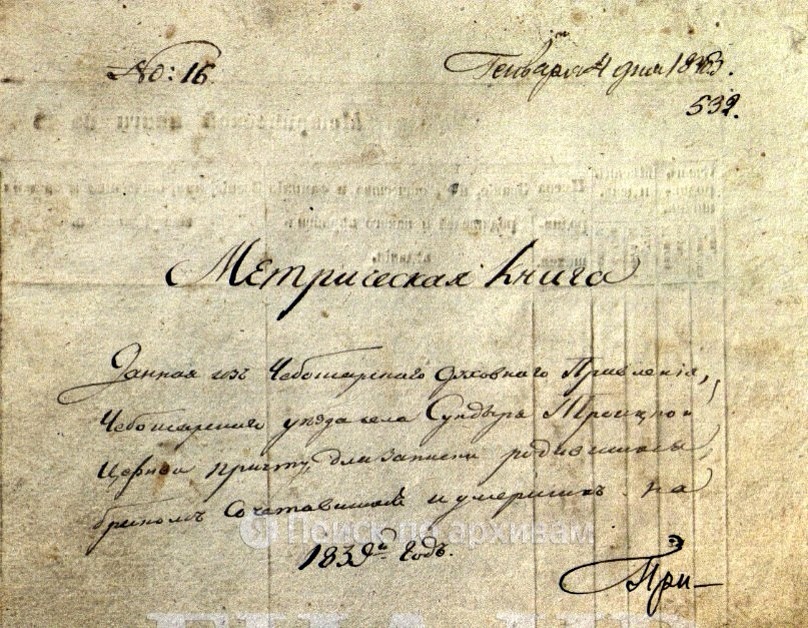 No: 16.
Генваря 4 дня 18
532.
Метрическая Книга
Данная изъ Чебоксарскаго духовнаго Правленія,
Чебоксарскаго уѣзда села Сундыра Троицкой
Церкви причту, для записки родившихся,
бракомъ сочетавшихся и умершихъ на
1839й Годъ.
При-
Поиск по архивам